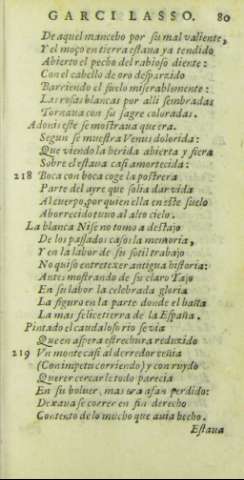 GARCI LASSO. 80
De aquel mancebo por su mal valiente,
Y el moço en tierra estaua ya tendido
Abierto el pecho del rabioso diente:
Con el cabello de oro desparzido
Barriendo el suelo miserablemente:
Las rosas blancas por alli sembradas
Tornaua con su sãgre coloradas.
Adonis este se mostraua que era.
Segun se muestra Venus dolorida:
Que viendo la herida abierta y fiera
Sobre el estaua casi amortecida:
218 Boca con boca coge la postrera
Parte del ayre que solia dar vida
Al cuerpo, por quien ella en este suelo
Aborrecido tuuo al alto cielo.
La blanca Nise no tomo a destajo
De los passados casos la memoria,
Y en la labor de su sotil trabajo
No quiso entretexer antigua historia:
Antes mostrando de su claro Tajo
En su labor la celebrada gloria
La figura en la parte donde el baña
La mas felice tierra de la España.
Pintado el caudaloso rio se via
Que en aspera estrechura reduzido
219 Vn monte casi al derredor tenia
(Con impetu corriendo) y con ruydo
Querer cercarle todo parecia
En su boluer, mas era afan perdido:
Dexaua se correr en fin derecho
Contento de lo mucho que auia hecho.
Estaua